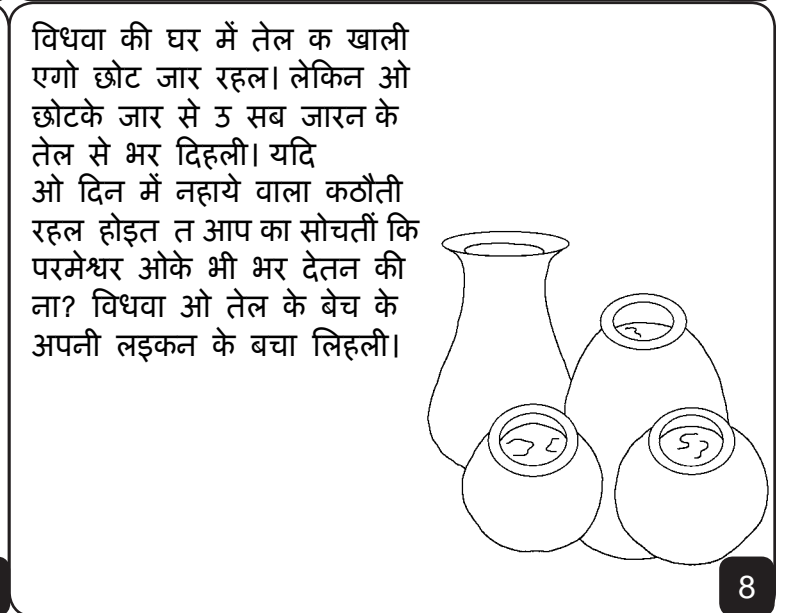 विधवा की घर में तेल क खाली
एगो छोट जार रहल। लेकिन ओ
छोटके जार से उ सब जारन के
तेल से भर दिहली। यदि
ओ दिन में नहाये वाला कठौती
रहल होइत त आप का सोचतीं कि
परमेश्वर ओके भी भर देतन की
ना? विधवा ओ तेल के बेच के
अपनी लइकन के बचा लिहली।
8